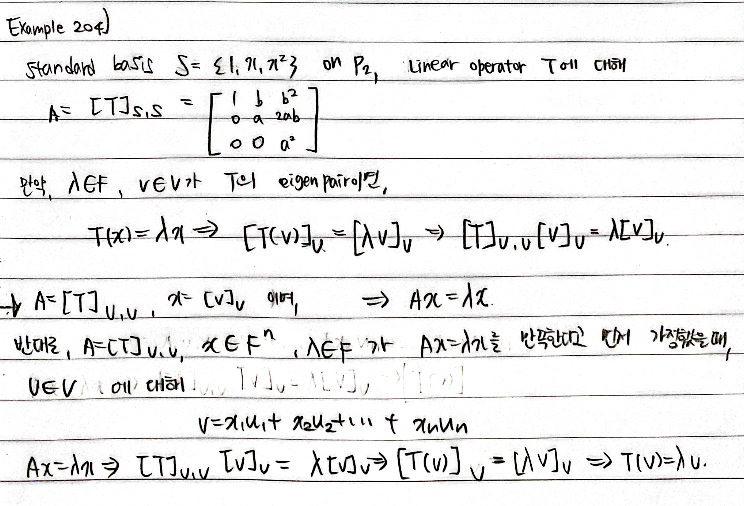 Example 204)
standard basis S = {1, x, x²} on P₂, Linear operator T에 대해
A = [T]_{S,S} = [1 b b²
0 a 2ab
0 0 a²]
만약, λ∈F, v∈V가 T의 eigenpair이면,
T(x) = λx ⇒ [T(v)]_U = [λv]_U ⇒ [T]_{U,U} [v]_U = λ[v]_U.
→ A = [T]_{U,U}, x = [v]_U 이며, ⇒ Ax = λx.
반대로, A = [T]_{U,U}, x∈Fⁿ, λ∈F 가 Ax = λx를 만족한다고 먼저 가정했을 때,
v∈V 에 대해
v = x₁u₁ + x₂u₂ + ... + xₙuₙ
Ax = λx ⇒ [T]_{U,U} [v]_U = λ[v]_U ⇒ [T(v)]_U = [λv]_U ⇒ T(v) = λv.